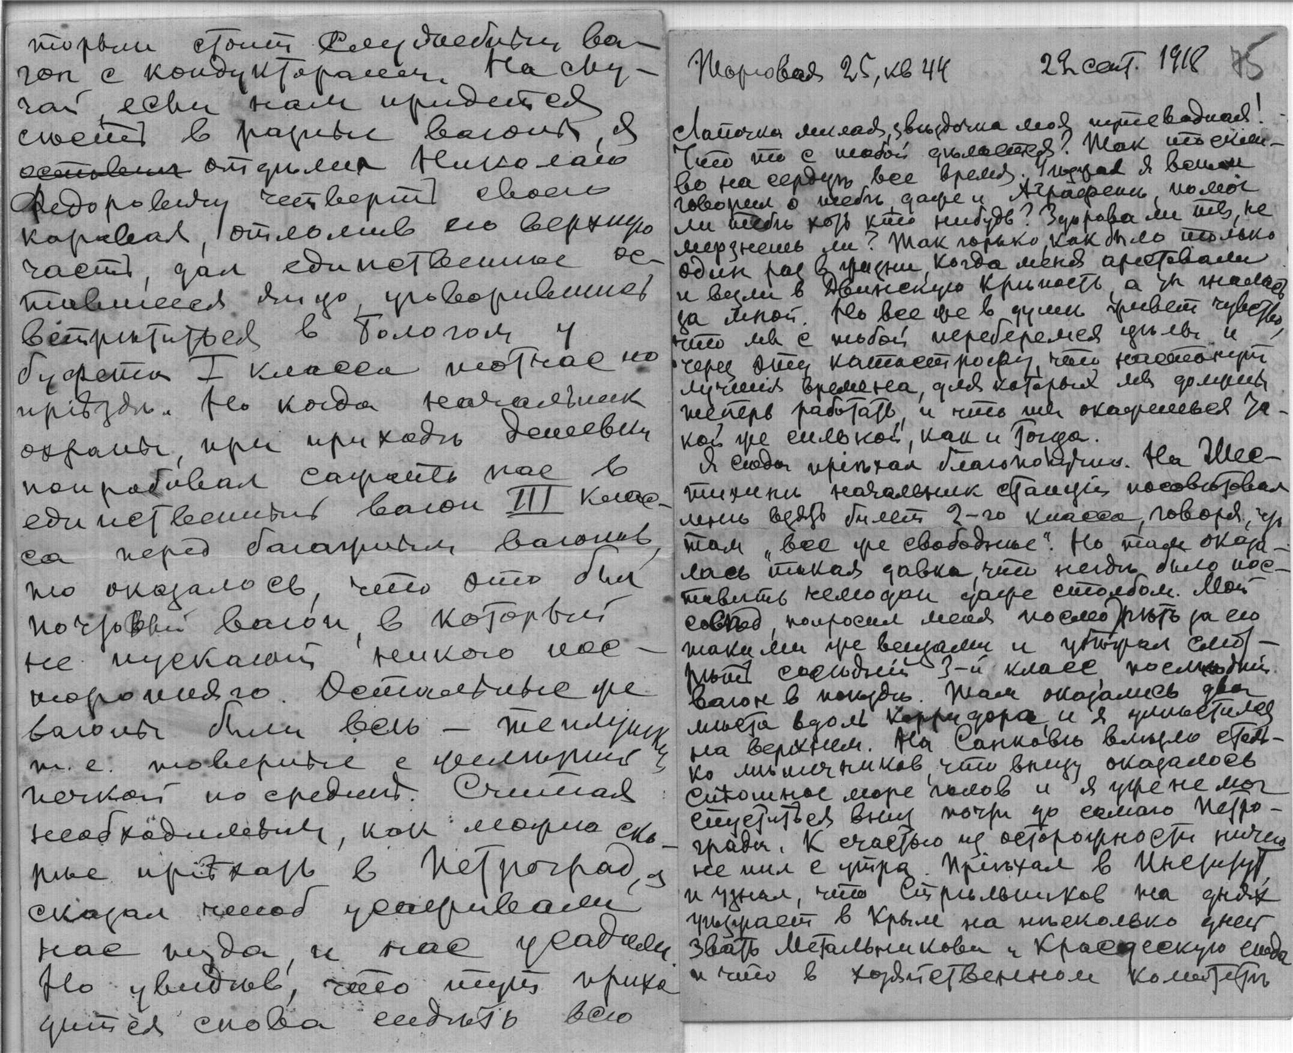 торым стоит служебный ва-
гон с кондукторами. На слу-
чай, если нам придется
сесть в разные вагоны, я
отделил Николаю
Федоровичу четверть своего
каравая, отломив его верхнюю
часть, дал единственное ос-
тавшееся яйцо, уговорившись
встретиться в Бологом у
буфета I класса тотчас по
приѣздѣ. Но когда начальник
охраны, при приходѣ
попробовал сажать нас в
единственный вагон III клас-
са перед багажным вагоном,
то оказалось, что это был
почтовый вагон, в который
не пускают никого пос-
торонняго. Остальные же
вагоны были всѣ – теплушки,
т.е. товарные с желѣзной
печкой по срединѣ. Считая
необходимым, как можно ско-
рѣе приѣхать в Петроград, я
сказал чтоб усаживали
нас туда, и нас усадили.
Но увидѣв, что тут прихо
дится снова сидѣть всю
Торговая 25, кв 44 22 сент. 1918 75
Лапочка милая, звѣздочка моя путеводная!
Что то с тобой дѣлается? Так тоскли-
во на сердцѣ все время. я всѣм
говорил о тебѣ, даже и Аграфенѣ, помог
ли тебѣ хоть кто нибудь? Здорова ли ты, не
мерзнешь ли? Так горько, как было только
один раз в жизни, когда меня арестовали
и везли в Двинскую крѣпость, а ты гналась
за мной. Но все же в душѣ живет чувство,
что мы с тобой переберемся цѣлы и
через эту катастрофу, что настанут
лучшія времена, для которых мы должны
теперь работать, и что ты окажешься та-
кой же сильной, как и тогда.
Я сюда приѣхал благополучно. На Шес-
тихинѣ начальник станціи посовѣтовал
мнѣ взять билет 2-го класса, говоря, что
там „все же свободнѣе“. Но там оказа-
лась такая давка, что негдѣ было пос-
тавить чемодан даже столбом. Мой
сосѣд, попросил меня посмотрѣть за его
такими же вещами и убѣжал смот-
рѣть сосѣдній 3-й класс, послѣдній
вагон в поѣздѣ. Там оказались два
мѣста вдоль корридора, и я умѣстился
на верхнем. На Санковѣ влѣзло столь-
ко мѣшечников, что внизу оказалось
сплошное море голов и я уже не мог
спуститься вниз почти до самаго Петро-
града. К счастью из осторожности ничего
не пил с утра. Приѣхал в Институт,
и узнал, что Стрѣльников на днях
уѣзжает в Крым на нѣсколько дней
звать Метальникова и сюда
и что в хозяйственном комитетѣ